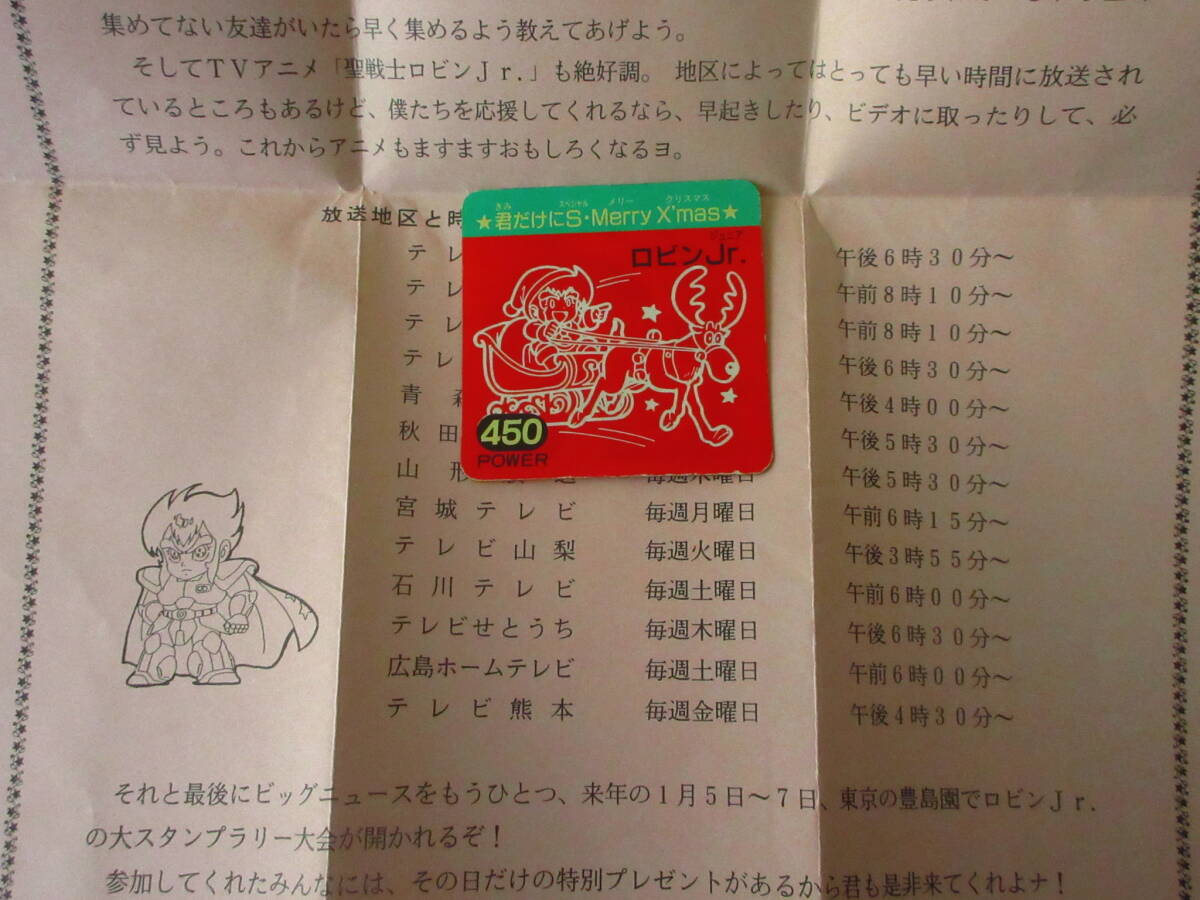 集めてない友達がいたら早く集めるよう教えてあげよう。
そしてTVアニメ「聖戦士ロビンJr.」も絶好調。 地区によってはとっても早い時間に放送され
ているところもあるけど、僕たちを応援してくれるなら、早起きしたり、ビデオに取ったりして、必
ず見よう。これからアニメもますますおもしろくなるヨ。
放送地区と時
テレ 午後6時30分〜
テレ 午前8時10分〜
テレ 午前8時10分〜
テレ 午後6時30分〜
青森 午後4時00分〜
秋田 午後5時30分〜
山形 毎週木曜日 午後5時30分〜
宮城テレビ 毎週月曜日 午前6時15分〜
テレビ山梨 毎週火曜日 午後3時55分〜
石川テレビ 毎週土曜日 午前6時00分〜
テレビせとうち 毎週木曜日 午後6時30分〜
広島ホームテレビ 毎週土曜日 午前6時00分〜
テレビ熊本 毎週金曜日 午後4時30分〜
きみ スペシャル メリー クリスマス
★君だけにS・Merry X'mas★
ジュニア
ロビンJr.
450
POWER
それと最後にビッグニュースをもうひとつ、来年の1月5日〜7日、東京の豊島園でロビンJr.
の大スタンプラリー大会が開かれるぞ！
参加してくれたみんなには、その日だけの特別プレゼントがあるから君も是非来てくれよナ！